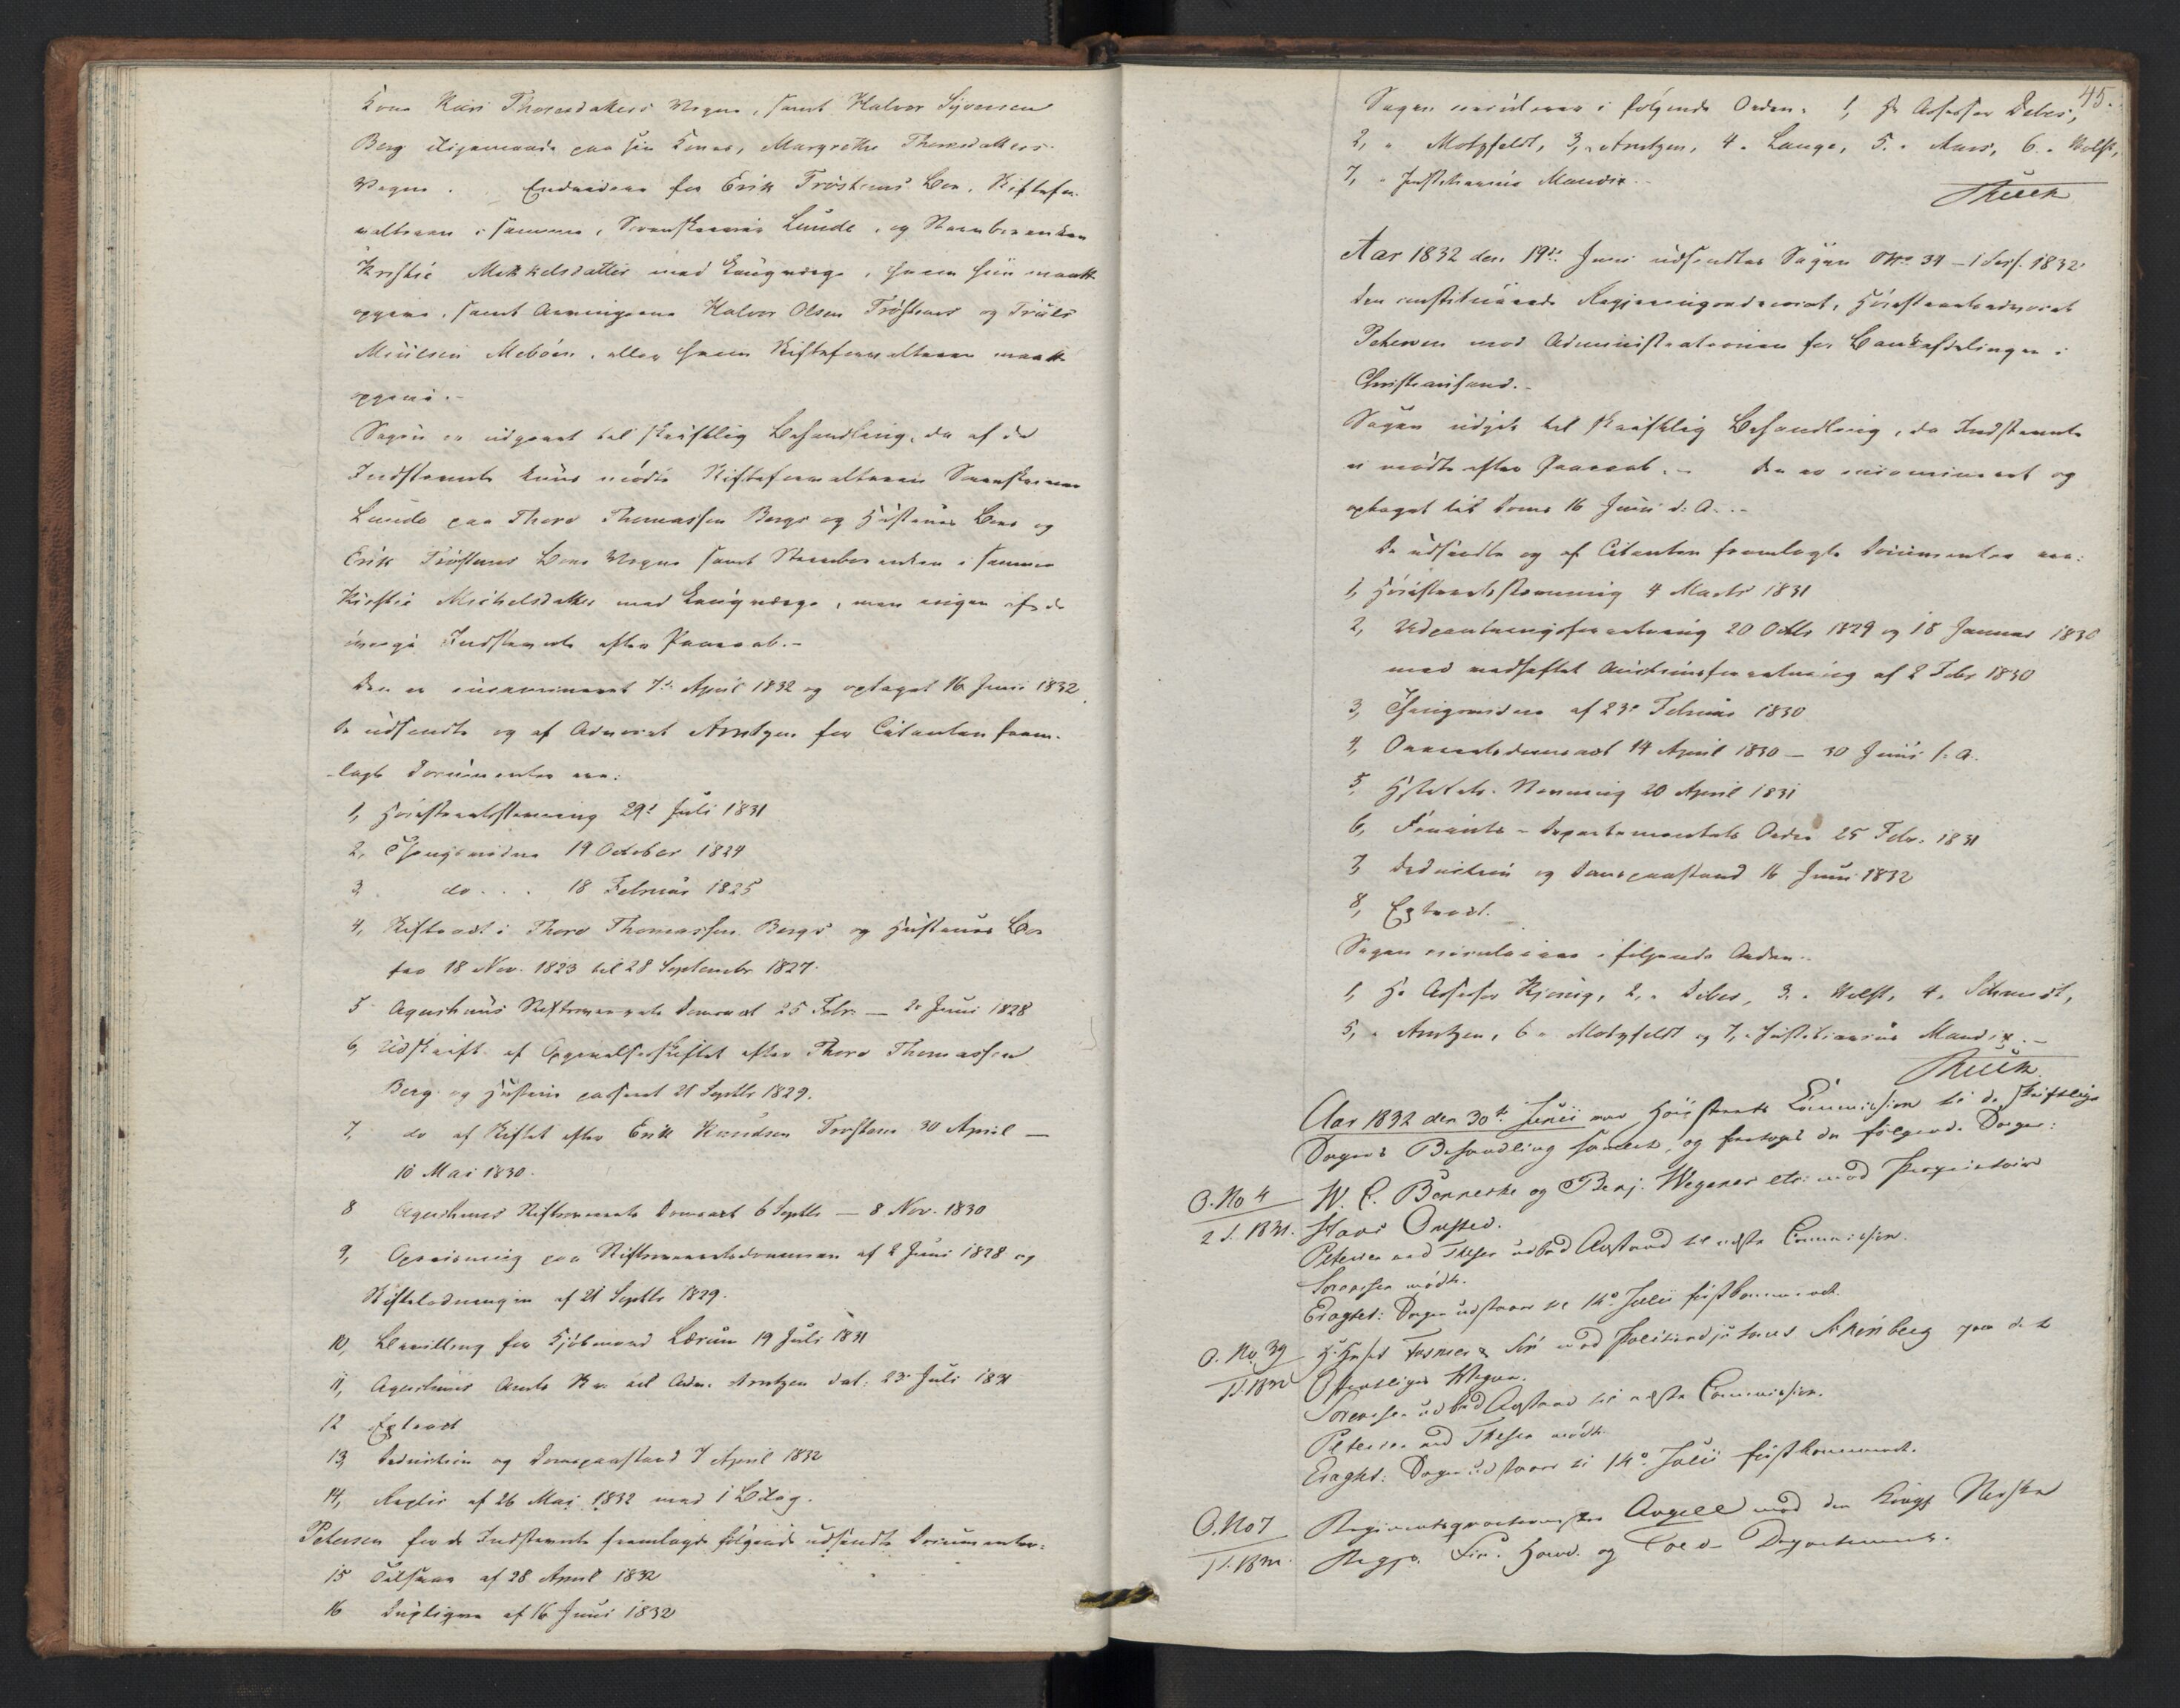 Kone Kari Thoresdatters Vegne, samt Halvor Syversen
Berg ligemaade paa sin Kones, Margrethe Thoresdatters
Vegne. Endvidere for Erik Tröstems Boe, Skiftefor-
valteren i samme, Sorenskriver Lunde, og Stervboenken
Kirstie Mikkelsdatter med Laugværge, hvem hun maatte
opgive, samt Arvingerne Halvor Olsen Tröstem og Truls
Meboen, eller hvem Skifteforvalteren maatte
opgive.-
Sagen er udgaaet til skriftlig Behandling, da af de
Indstevnte kuns mödte Skifteforvalteren Sorenskriver
Lunde paa Thore Thomassen Bergs og Hustrues Boes og
Erik Tröstems Boes Vegne samt Stervboenken i samme
Kirstie Michelsdatter med Laugværge, men ingen af de
övrige Indstevnte efter Paaraab.-
Den er incamineret 7de April 1832 og optaget 16 Juni 1832.
De udsendte og af Advocat Arntzen for Citanten frem-
lagte Documenter ere:
1, Höiesteretsstevning 29de Juli 1831
2, Thingsvidne 19 October 1824
3, do... 18 Februar 1825
4, Skifteact i Thore Thomassen Bergs og Hustrues Boe
fra 18 Nov. 1823 til 28 Septembr 1827.
5 Agershuus Stiftsoverrets Domsact 25 Febr. — 2 Juni 1828
6, Udskrift af Opgivelsesskiftet efter Thore Thomassen
Berg og Hustrue passeret 21 Septbr 1829.
7, do af Skiftet efter Erik Knudsen Tröstem 30 April —
10 Mai 1830.
8 Agershuus Stiftsoverrets Domsact 6 Septbr — 8 Nov. 1830
9, paa Stiftsoverretsdommen af 2 Juni 1828 og
Skifteslutningen af 21 Septbr 1829.
10, Bevilling for Kjöbmand Lærum 19 Juli 1831
11, Agershuus Amts Skr. til Adv. Arntzen dat: 23 Juli 1831
12 Extract
13, Deduction og Domspaastand 7 April 1832
14, Replic af 26 Mai 1832 med 1 Bilag.
Petersen for de Indstevnte fremlagde fölgende udsendte Documenter:
15 Tilsvar af 28 April 1832
16 Duplique af 16 Juni 1832
45.
Sagen circulerer i fölgende Orden: 1, Hr Assessor Debes,
2, " Motzfeldt, 3, " Arntzen, 4 " Lange, 5. " Aars, 6. " Wulfs,
7, " Justitiarius Mandix.-
Aar 1832 den 19de Juni udsendtes Sagen No 34 - 1 Sess. 1832:
Den constituerede Regjeringsadvocat, Höiesteretsadvocat
Petersen mod Administrationen for Bankafdelingen i
Christiansand.-
Sagen udgik til skriftlig Behandling, da Indstevnte
ei mödte efter Paaraab.- Den er incamineret og
optaget til Doms 16 Juni d. A.-
De udsendte og af Citanten fremlagte Documenter ere:
1, Höiesteretsstevning 4 Marts 1831
2, Udpantningsforretning 20 Octbr 1829 og 18 Januar 1830
med vedheftet Auctionsforretning af 2 Febr 1830
3, Thingsvidne af 23de Februar 1830
4, Overretsdomsact 14 April 1830 — 30 Juni s. A.
5, 20 April 1831
6, Finants-Departementets Ordre 25 Febr. 1831
7, Deduction og Domspaastand 16 Juni 1832
8, Extract.
Sagen circulerer i fölgende Orden.
1, Hr Assessor Kjönig, 2, " Debes, 3. " Wulfs, 4. " Schmidt,
5, " Arntzen, 6 " Motzfeldt og 7, " Justitiarius Mandix.-
Aar 1832 den 30te Junii var Höiesterets Commission til de skriftlige
Sagers Behandling samlet, og foretoges da fölgende Sager:
O. No 4
2 S. 1831.
W. C. Borneske og Benj. Wegener etc. mod Proprietair
Hans Onsted.
Petersen ved Thesen udbad Anstand til næste Commission.
Sörensen mödte.
Eragtet: Sagen udstaaer til 14de Julii förstkommende.
O. No 39
1 S. 1832
H. Fasmer & Sön mod Politiadjutant Steinberg paa det
Offentliges Vegne.
Sörensen udbad Anstand til næste Commission.
Petersen ved Thesen mödte
Eragtet: Sagen udstaaer til 14de Julii förstkommende.
O. No 7
1 S. 1832.
Regimentsqvarteermester Angell mod den Kongl. Norske
Regjs. Fin: Handl. og Told Departement.